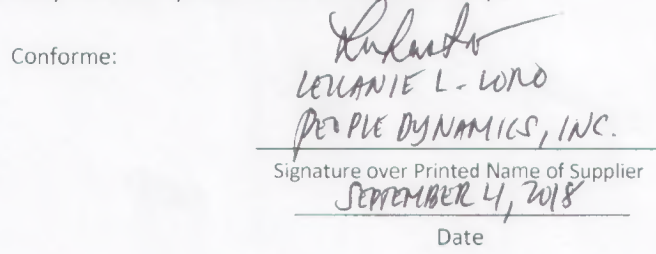 Conforme:
L. LORO
PEOPLE DYNAMICS, INC.
Signature over Printed Name of Supplier
SEPTEMBER 4, 2018
Date